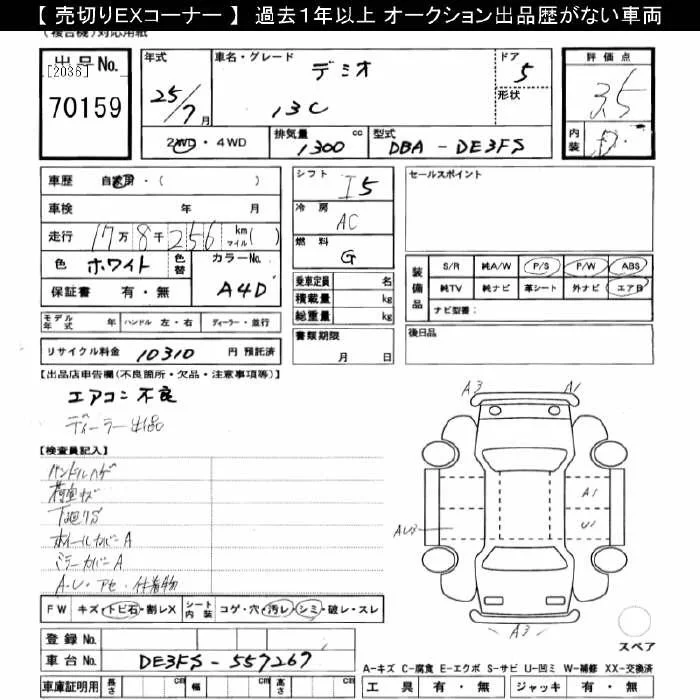 【 売切りEXコーナー 】 過去1年以上 オークション出品歴がない車両
(複合機)対応用紙
出品No. [2036] 70159
年式 25/7月
車名・グレード デミオ 13C
ドア 5
形状
評価点 3.5
内装
2WD・4WD
排気量 1300 cc
型式 DBA-DE3FS
車歴 自家用・( )
車検 年 月
走行 17万8千256 km マイル( )
色 ホワイト 色替 カラーNo. A4D
保証書 有・無
モデル年式 年 ハンドル 左・右 ディーラー・並行
リサイクル料金 10310 円 預託済
シフト I5
冷房 AC
燃料 G
乗車定員 名
積載量 kg
総重量 kg
書類期限 月 日
セールスポイント
装備品 S/R 純A/W P/S P/W ABS
純TV 純ナビ 革シート 外ナビ エアB
ナビ型番:
後日品
【出品店申告欄(不良箇所・欠品・注意事項等)】
エアコン不良
ディーラー出品
【検査員記入】
ハンドルハゲ
荷室キズ
下廻りS
ホイールカバーA
ミラーカバーA
A・U・アセ・付着物
FW キズ・トビ石・割レX シート内装 コゲ・穴・汚レ・シミ・破レ・スレ
登録No.
車台No. DE3FS-557267
車庫証明用 長さ cm 幅 cm 高さ cm
A3 A1
A1
U1
AU3
A3
スペア
A-キズ C-腐食 E-エクボ S-サビ U-凹ミ W-補修 XX-交換済
工具 有・無 ジャッキ 有・無